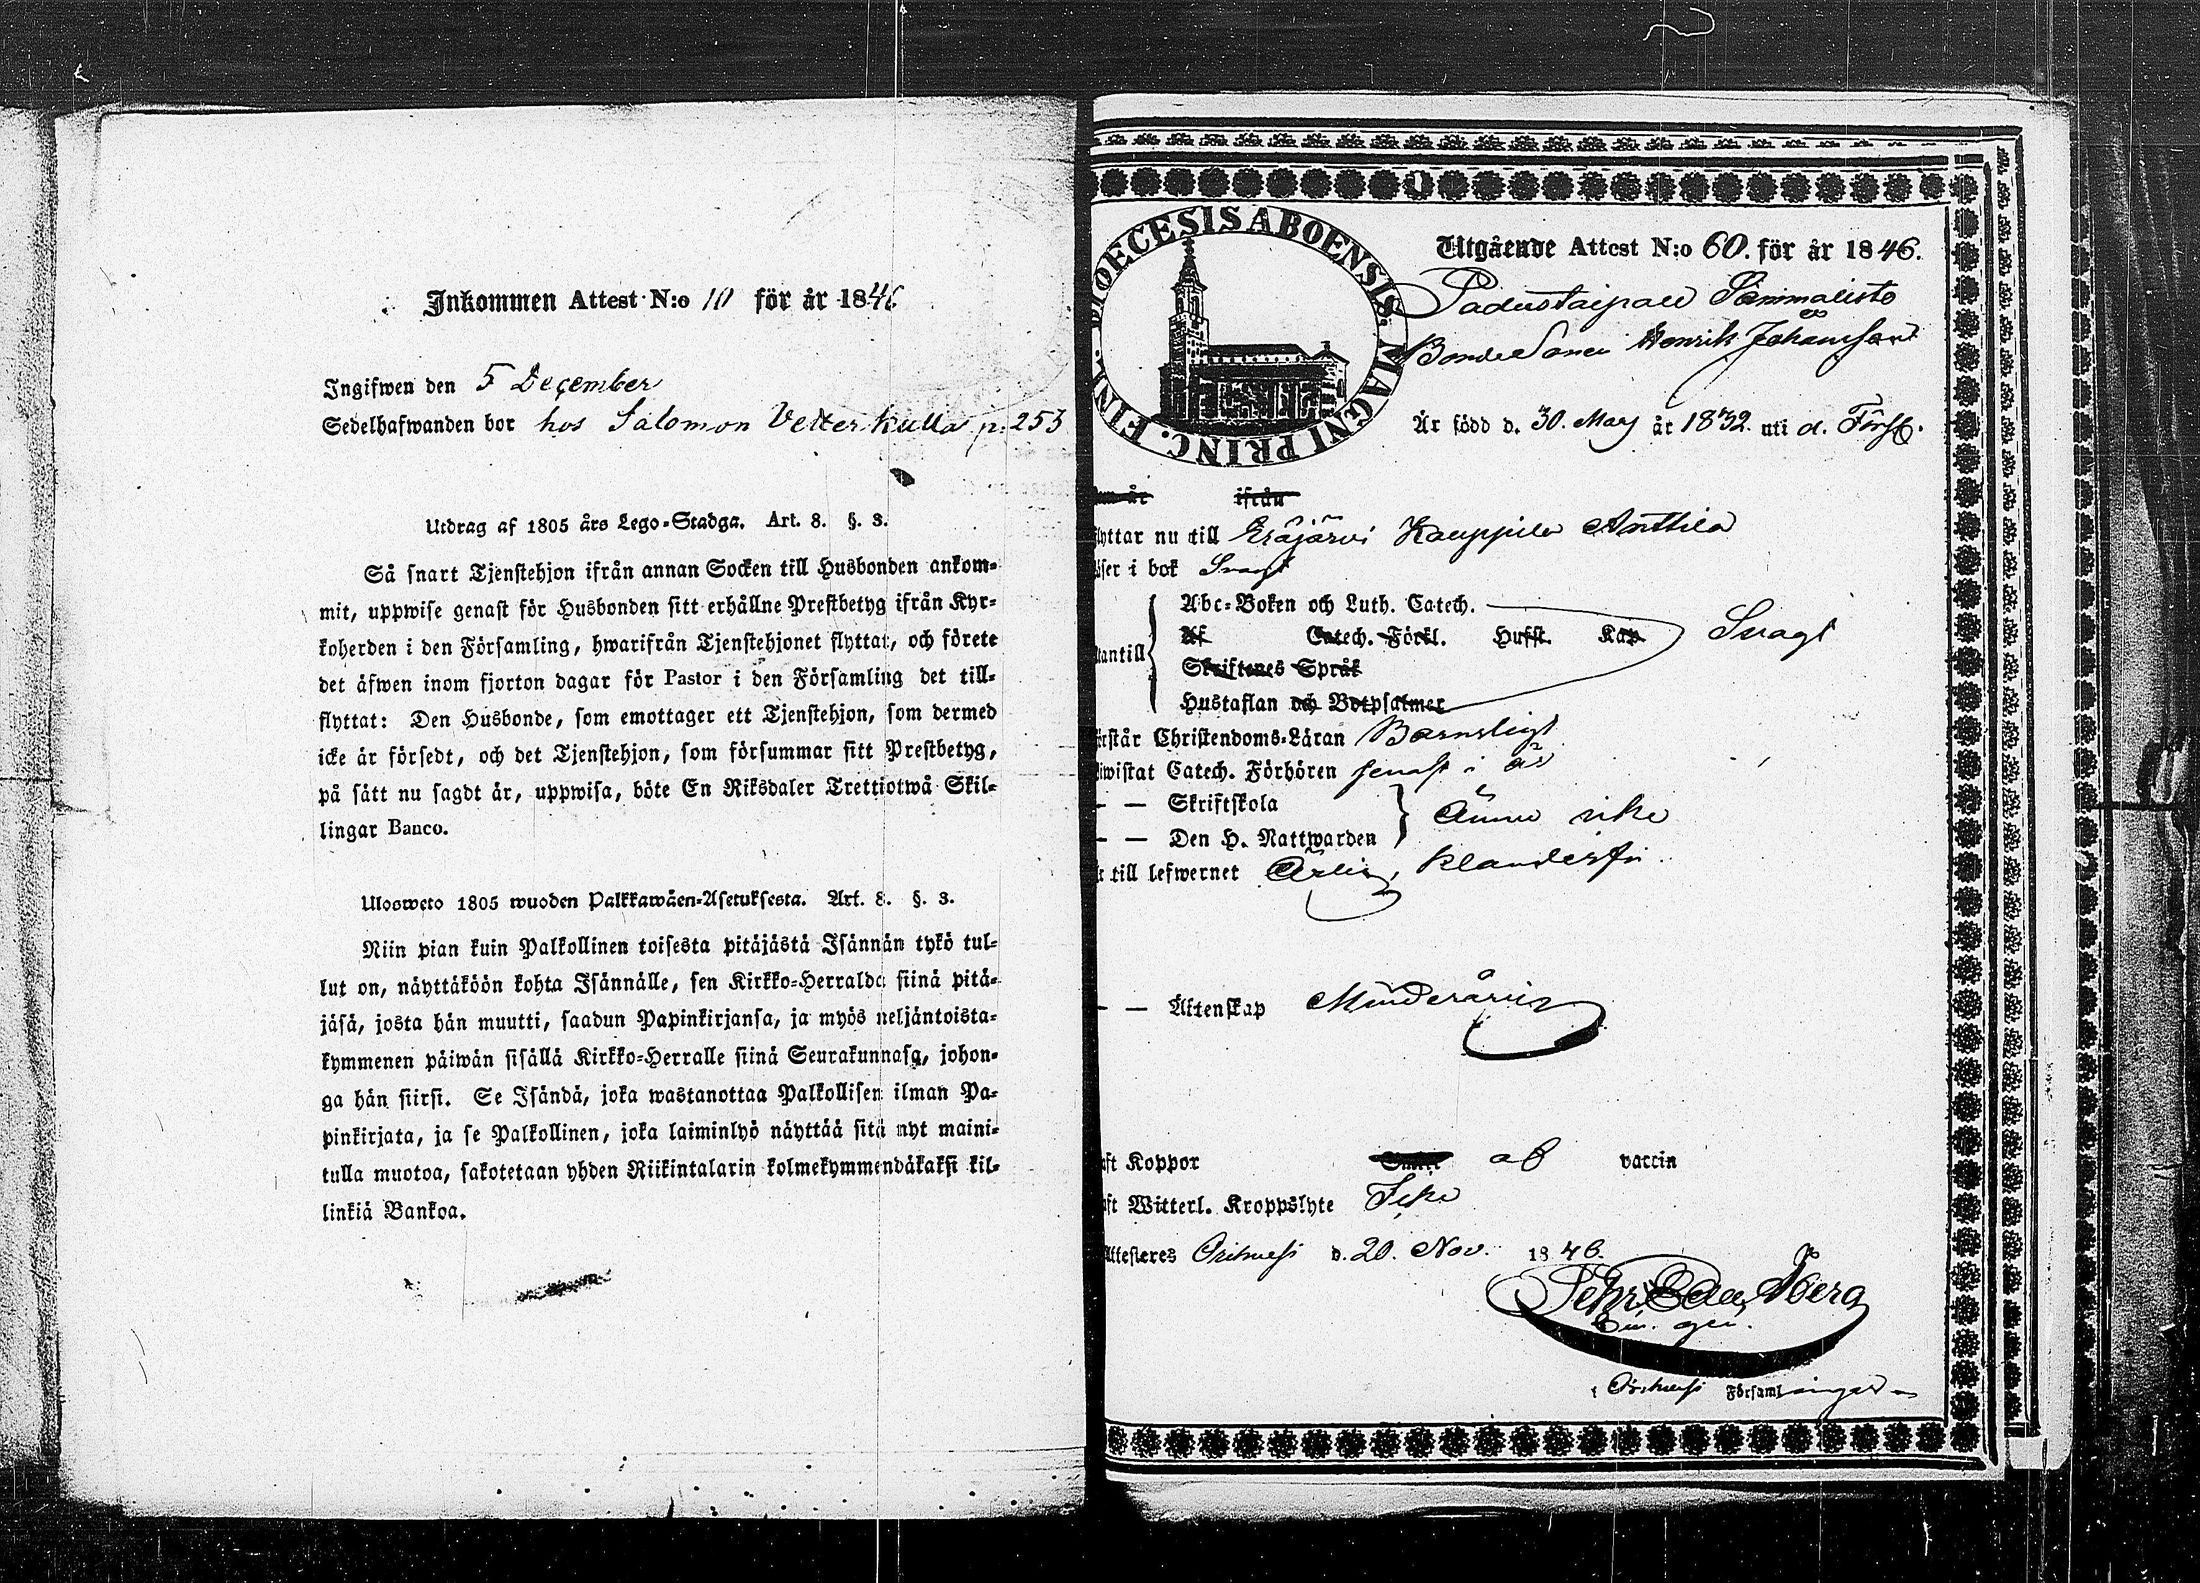 Inkommen Attest N:o 10 för år 1846
Ingifwen den 5 December
Sedelhafwanden bor hos Salomon Vetterkulla p. 253
Utdrag af 1805 års Lego-Stadga. Art. 8. §. 3.
Så snart Tjenstehjon ifrån annan Socken till Husbonden ankom-
mit, uppwise genast för Husbonden sitt erhållne Prestbetyg ifrån Kyr-
koherden i den Församling, hwarifrån Tjenstehjonet flyttat, och förete
det äfwen inom fjorton dagar för Pastor i den Församling det till-
flyttat: Den Husbonde, som emottager ett Tjenstehjon, som dermed
icke är försedt, och det Tjenstehjon, som försummar sitt Prestbetyg,
på sätt nu sagdt är, uppwisa, böte En Riksdaler Trettiotwå Skil-
lingar Banco.
Ulosweto 1805 wuoden Palkkawäen-Asetuksesta. Art. 8. §. 3.
Niin pian kuin Palkollinen toisesta pitäjästä Isännän tykö tul-
lut on, näyttäköön kohta Isännälle, sen Kirkko-Herralda siinä pitä-
jäsä, josta hän muutti, saadun Papinkirjansa, ja myös neljäntoista-
kymmenen päiwän sisällä Kirkko-Herralle siinä Seurakunnasa, johon-
ga hän siirsi. Se Isändä, joka wastanottaa Palkollisen ilman Pa-
pinkirjata, ja se Palkollinen, joka laiminlyö näyttää sitä nyt maini-
tulla muotoa, sakotetaan yhden Riikintalarin kolmekymmendäkaksi kil-
linkiä Bankoa.
DIOECESIS ABOENSIS. MAGNI PRINC. FINL.
Utgående Attest N:o 60. för år 1846.
Padustaipale
BondeSonen Henrik Johansson
Är född d. 30. May år 1832 uti d. Förs.
om år ifrån
flyttar nu till Eräjärvi Kauppila Anttila
läser i bok Svagt
utantill
Abc-Boken och Luth. Catech.
Af Catech. Förkl. Husst. Kap Svagt
Skriftenes Språk
Hustaflan och Botpsalmer
förstår Christendoms-Läran Barnsligt
biwistat Catech. Förhören senast i år
— — Skriftskola
— — Den H. Nattwarden ännu icke
är till lefwernet Ärlig, klanderfri
— — Äktenskap Minderårig
haft Koppor af vaccin
haft Witterl. Kroppslyte Icke
Attesteras Orihvesi d. 20. Nov. 1846.
Åberg
i Orihvesi Församlingar